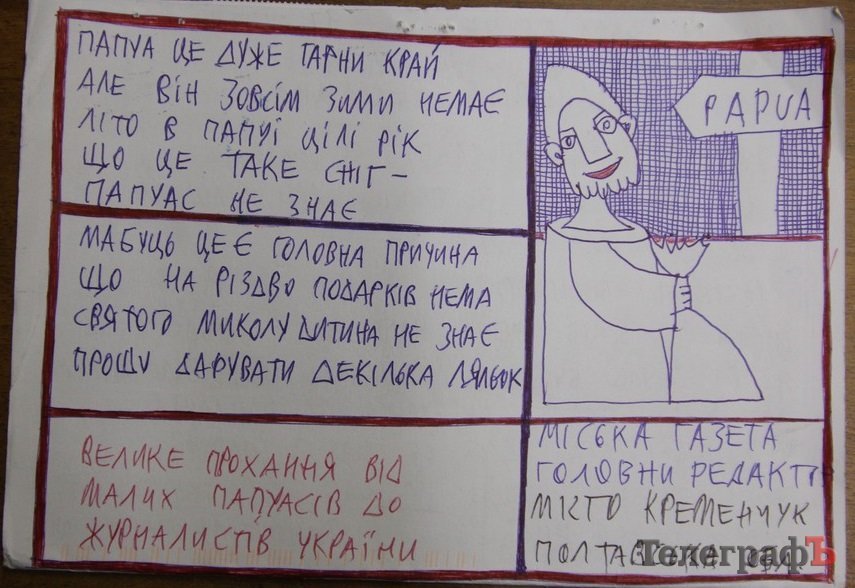 ПАПУА ЦЕ ДУЖЕ ГАРНИ КРАЙ
АЛЕ ВІН ЗОВСІМ ЗИМИ НЕМАЄ
ЛІТО В ПАПУІ ЦІЛІ РІК
ЩО ЦЕ ТАКЕ СНІГ –
ПАПУАС НЕ ЗНАЄ
МАБУЦЬ ЦЕ Є ГОЛОВНА ПРИЧИНА
ЩО НА РІЗДВО ПОДАРКІВ НЕМА
СВЯТОГО МИКОЛУ ДИТИНА НЕ ЗНАЄ
ПРОШУ ДАРУВАТИ ДЕКІЛЬКА ЛЯЛЬОК
ВЕЛИКЕ ПРОХАННЯ ВІД
МАЛИХ ПАПУАСІВ ДО
ЖУРНАЛИСТІВ УКРАЇНИ
PAPUA
МІСЬКА ГАЗЕТА
ГОЛОВНИ РЕДАКТОР
МІСТО КРЕМЕНЧУК
ПОЛТАВСЬКА ОБЛ
ТелеграфЪ